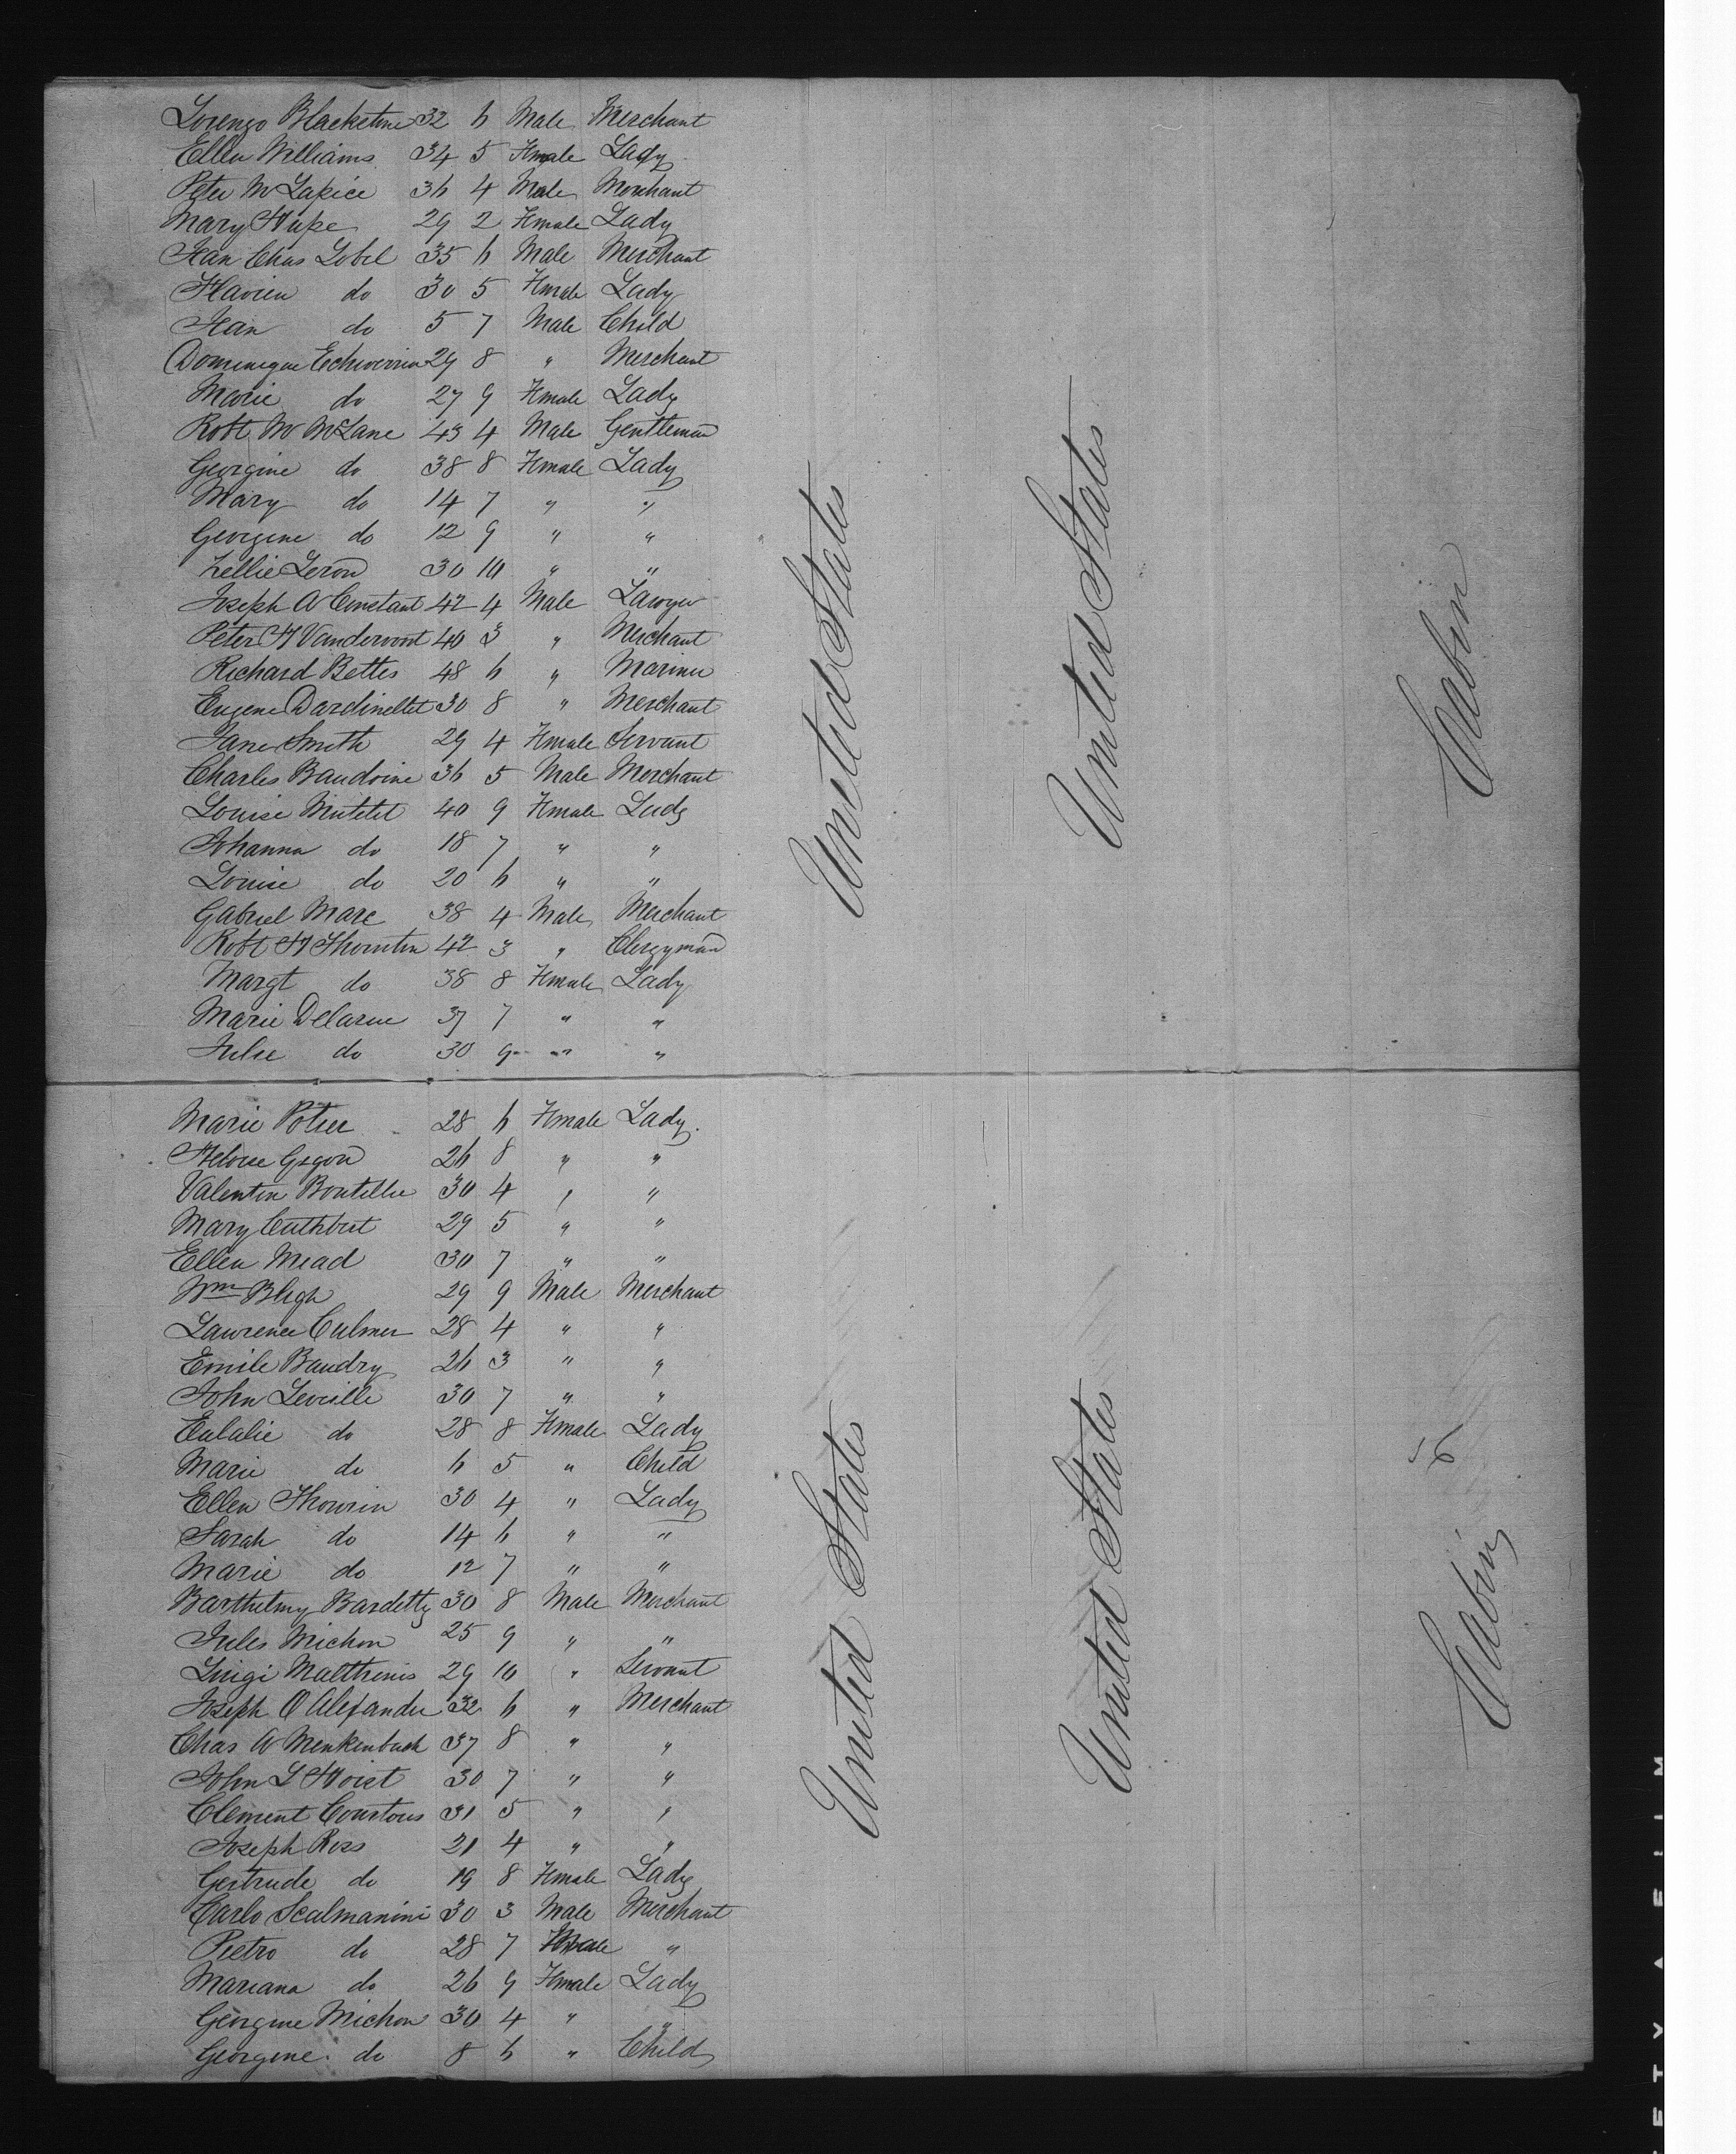 Lorenzo Blackstone 32 6 Male Merchant
Ellen Williams 34 5 Female Lady
Peter M Lapice 36 4 Male Merchant
Mary Hupe 29 2 Female Lady
Jean Chas Lobel 35 6 Male Merchant
Flavien do 30 5 Female Lady
Jean do 5 7 Male Child
Dominique Echiverria 29 8 " Merchant
Marie do 27 9 Female Lady
Robt M McLane 43 4 Male Gentleman
Georgine do 38 8 Female Lady
Mary do 14 7 " "
Georgine do 12 9 " "
Zellie Leron 30 10 " "
Joseph A Constant 42 4 Male Lawyer
Peter H Vandervoort 40 3 " Merchant
Richard Bettes 48 6 " Mariner
Eugene Dardinellet 30 8 " Merchant
Jane Smith 29 4 Female Servant
Charles Baudoine 36 5 Male Merchant
Louise Mutelet 40 9 Female Lady
Johanna do 18 7 " "
Louise do 20 6 " "
Gabriel Marc 38 4 Male Merchant
Robt H Thornton 42 3 " Clergyman
Margt do 38 8 Female Lady
Marie Delarue 37 7 " "
Julie do 30 9 " "
United States
United States
Cabin
Marie Potier 28 6 Female Lady.
Heloise Gigon 26 8 " "
Valentin Boutellie 30 4 " "
Mary Cuthbert 29 5 " "
Ellen Mead 30 7 " "
Wm Bligh 29 9 Male Merchant
Lawrence Culmer 28 4 " "
Emile Baudry 26 3 " "
John Leville 30 7 " "
Eulalie do 28 8 Female Lady
Marie do 6 5 " Child
Ellen Thourin 30 4 " Lady
Sarah do 14 6 " "
Marie do 12 7 " "
Barthelmy Bardetty 30 8 Male Merchant
Jules Michon 25 9 " "
Luigi Malthinis 29 10 " Servant
Joseph O Alexander 32 6 " Merchant
Chas A Menkenbach 37 8 " "
John L Hoist 30 7 " "
Clement Coustous 31 5 " "
Joseph Ross 21 4 " "
Gertrude do 19 8 Female Lady
Carlo Scalmanini 30 3 Male Merchant
Pietro do 28 7 Male "
Mariana do 26 9 Female Lady
Georgine Michon 30 4 " "
Georgine do 8 6 " Child
United States
United States
56
Cabin